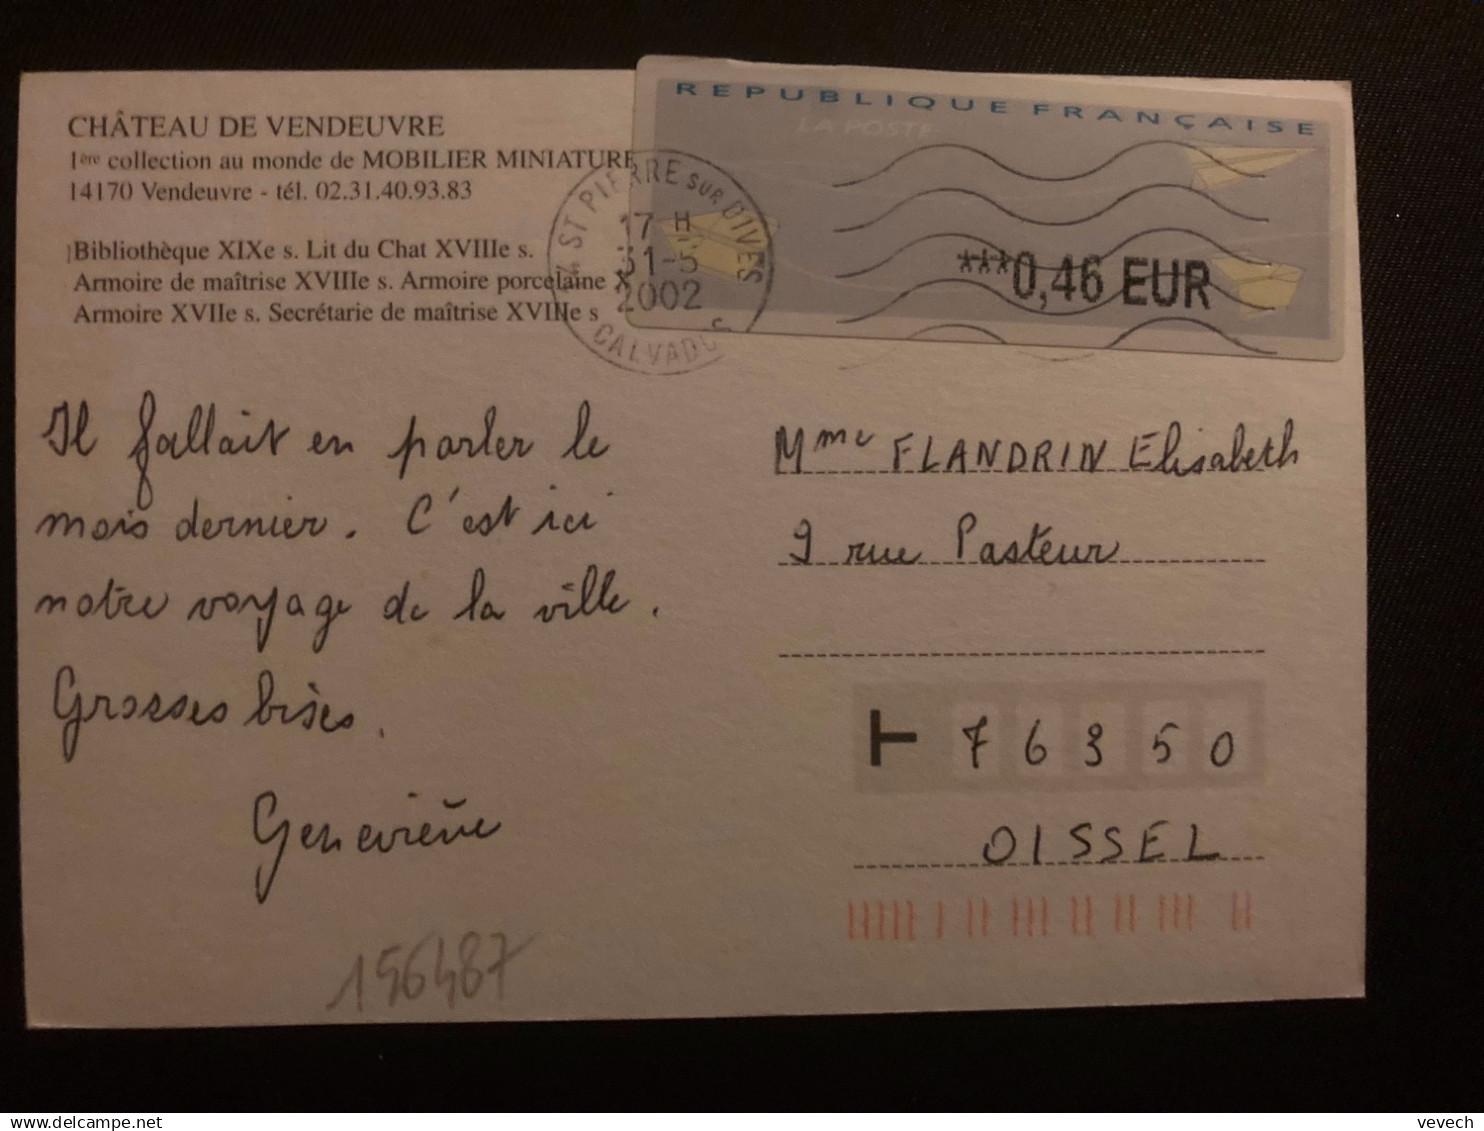 CHÂTEAU DE VENDEUVRE
1ère collection au monde de MOBILIER MINIATURE
14170 Vendeuvre - tél. 02.31.40.93.83
Bibliothèque XIXe s. Lit du Chat XVIIIe s.
Armoire de maîtrise XVIIIe s. Armoire porcelaine X
Armoire XVIIe s. Secrétarie de maîtrise XVIIIe s
REPUBLIQUE FRANÇAISE
LA POSTE
***0,46 EUR
ST PIERRE SUR DIVES
17 H
31-5
2002
CALVADOS
Il fallait en parler le
mois dernier. C'est ici
notre voyage de la ville.
Grosses bises.
Geneviève
Mme FLANDRIN Elisabeth
9 rue Pasteur
76350
OISSEL
156487
vevech